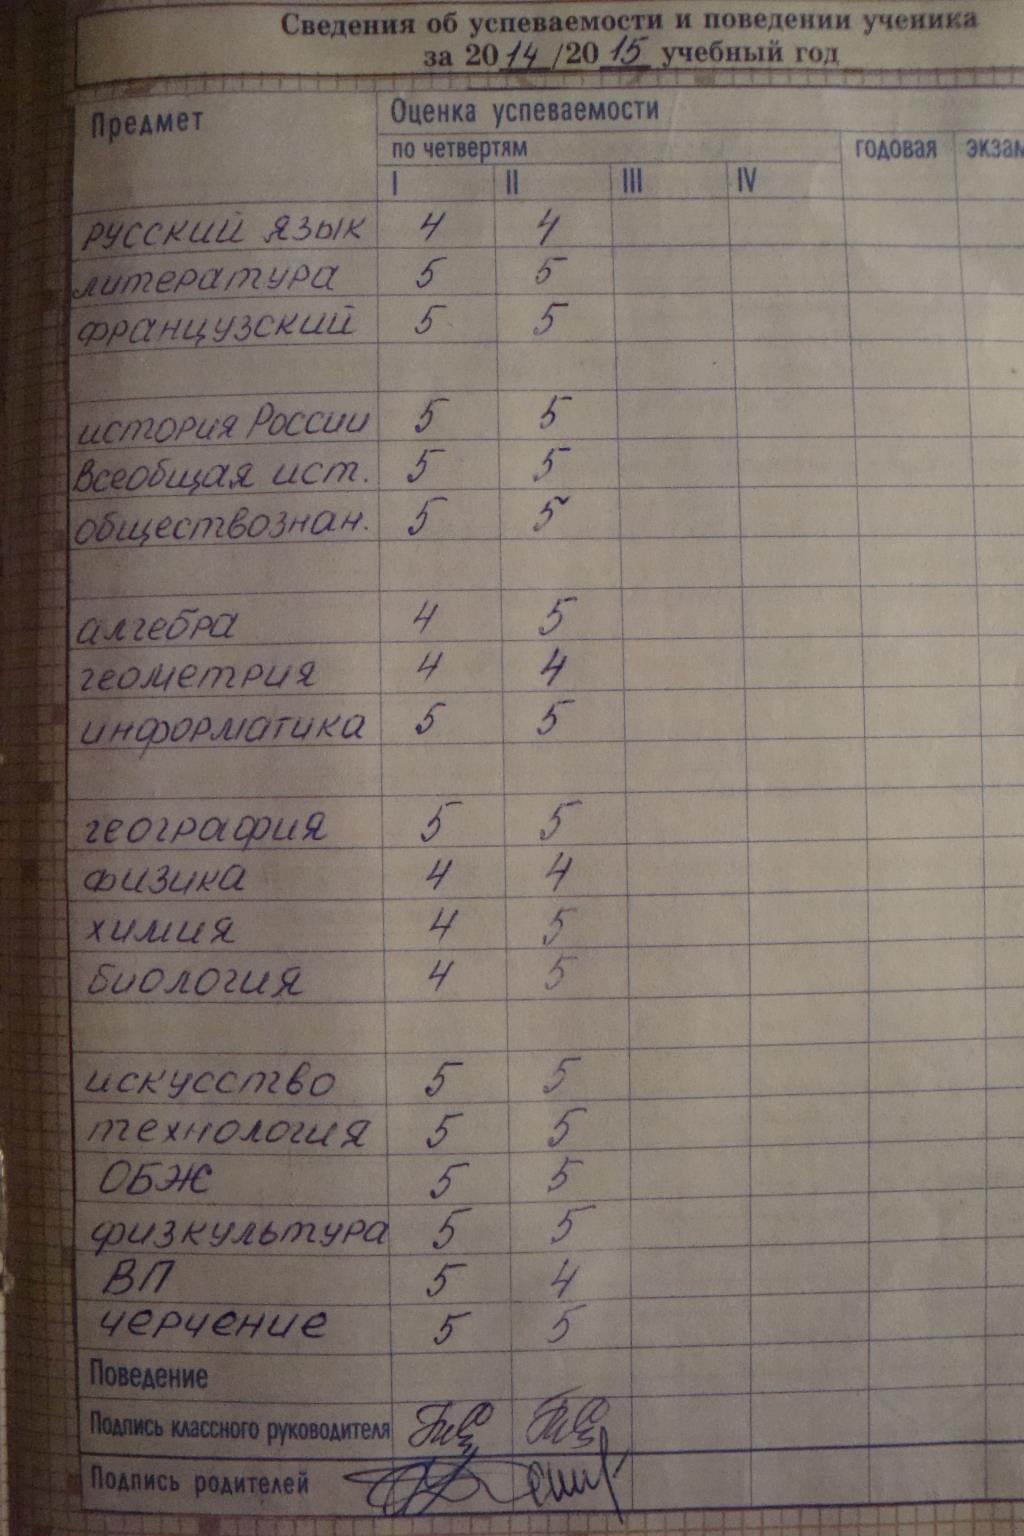 Сведения об успеваемости и поведении ученика
за 2014/2015 учебный год
Предмет Оценка успеваемости
по четвертям годовая экзам
I II III IV
русский язык 4 4
литература 5 5
французский 5 5
история России 5 5
Всеобщая ист. 5 5
обществознан. 5 5
алгебра 4 5
геометрия 4 4
информатика 5 5
география 5 5
физика 4 4
химия 4 5
биология 4 5
искусство 5 5
технология 5 5
ОБЖ 5 5
физкультура 5 5
ВП 5 4
черчение 5 5
Поведение
Подпись классного руководителя
Подпись родителей